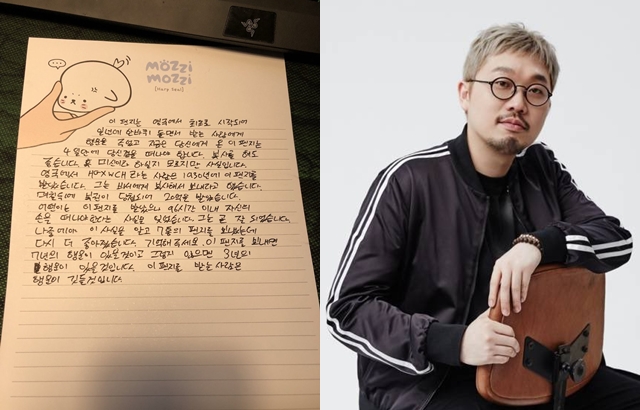 mozzi
mozzi
[Harp Seal]
이 편지는 영국에서 최초로 시작되어
일년에 한바퀴 돌면서 받는 사람에게
행운을 주었고 지금은 당신에게로 온 이 편지는
4일안에 당신곁을 떠나야 합니다. 복사를 해도
좋습니다. 혹 미신이라 하실지 모르지만 사실입니다.
영국에서 HGXWCH라는 사람은 1930년에 이 편지를
받았습니다. 그는 비서에게 복사해서 보내라고 했습니다.
며칠뒤에 복권이 당첨되어 20억을 받았습니다.
어떤이는 이 편지를 받았으나 96시간 이내 자신의
손을 떠나야한다는 사실을 잊었습니다. 그는 곧
나중에야 이 사실을 알고 7통의 편지를 보냈는데
다시 더 좋아졌습니다. 기억해주세요. 이 편지를 보내면
7년의 행운이 있을것이고 그렇지 않으면 3년의
행운이 있을것입니다. 이 편지를 받는 사람은
행운이 깃들것입니다